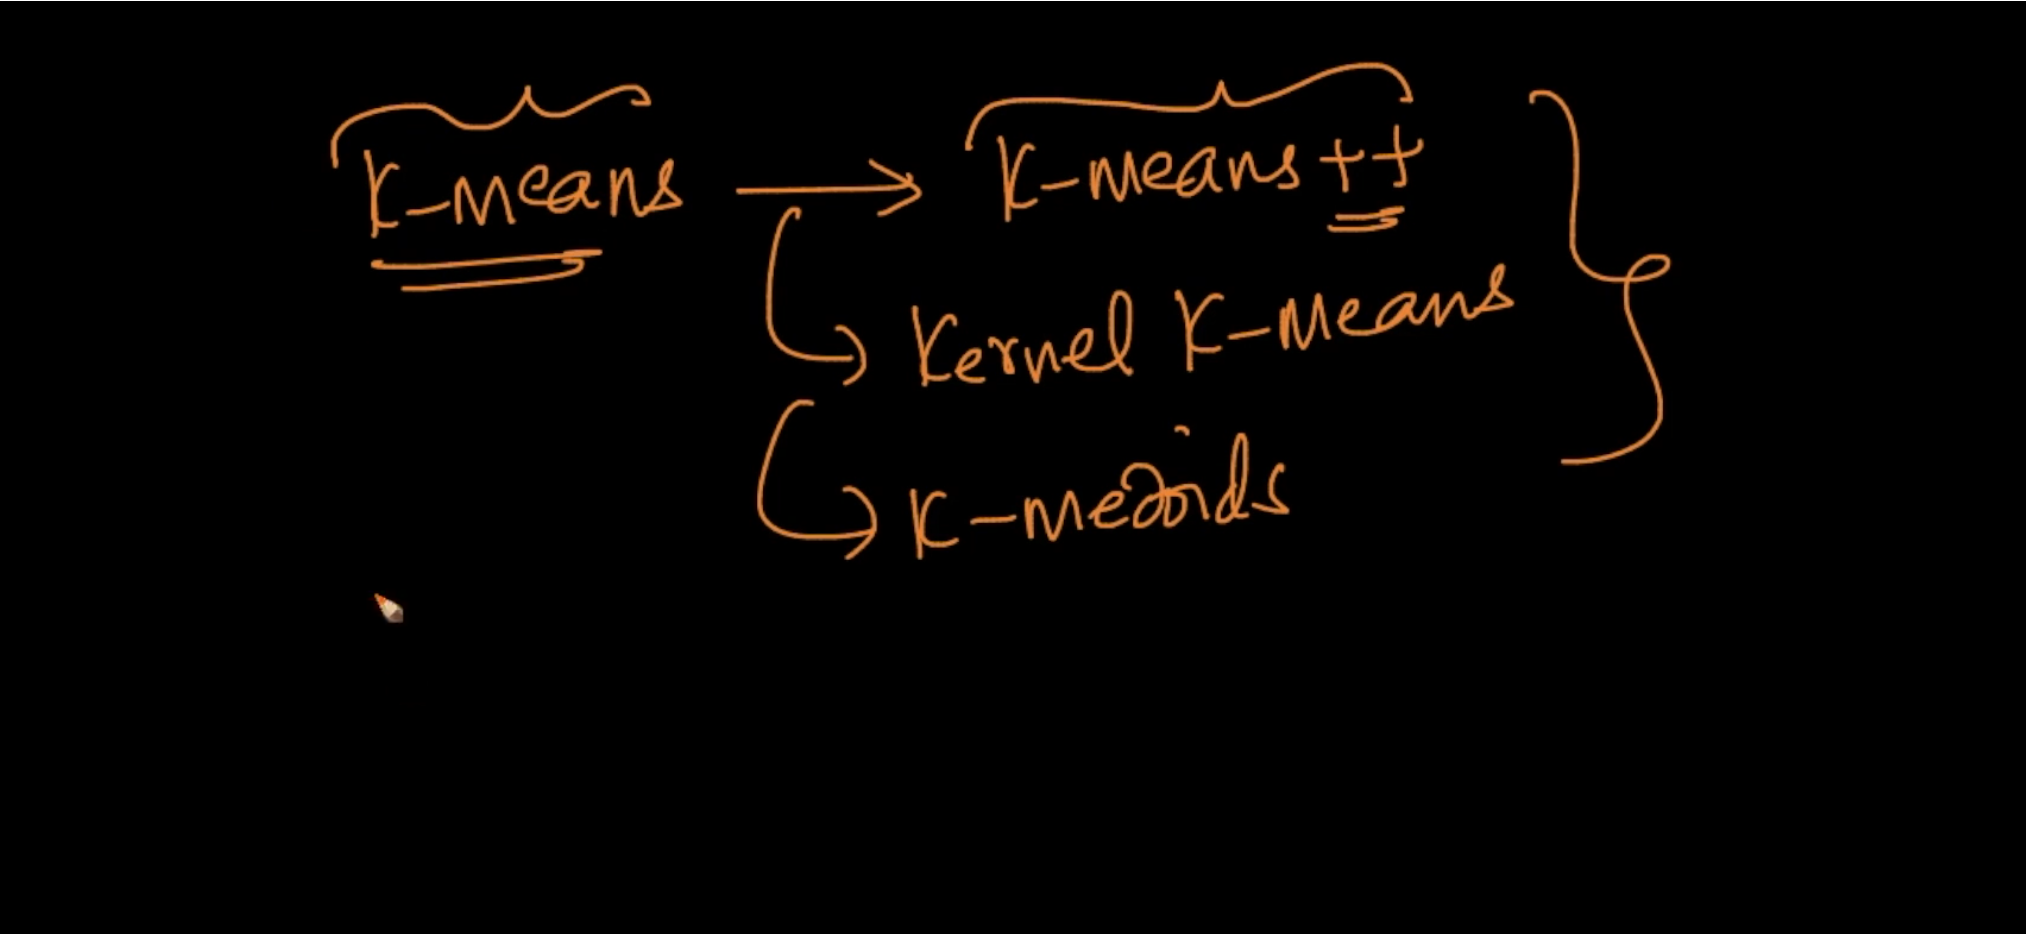 K-means → K-means++
Kernel K-Means
K-medoids